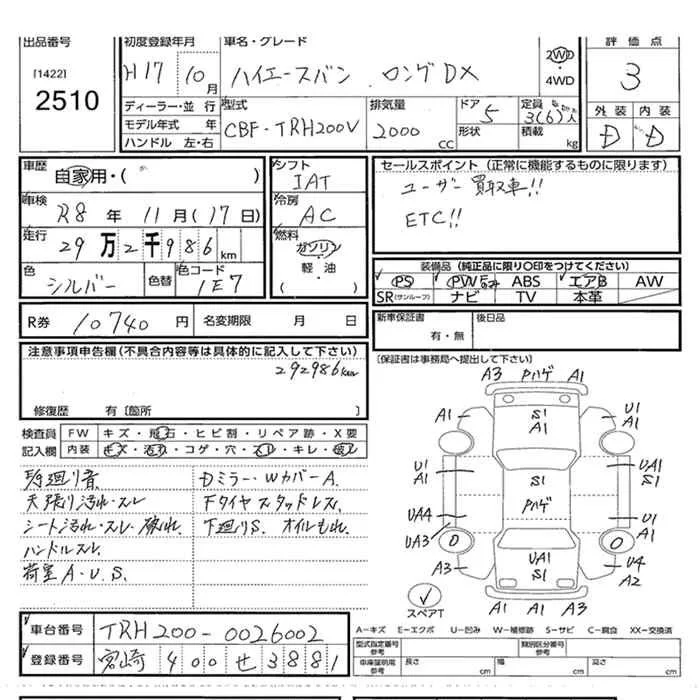 出品番号 初度登録年月 車名・グレード 評価点
[1422] H17 10月 ハイエースバン ロングDX 2WD・4WD 3
2510
ディーラー・並行 型式 排気量 ドア 5 定員 3(6)人 外装 内装
モデル年式 年 CBF-TRH200V 2000cc 形状 積載 kg D D
ハンドル 左・右
車歴 自家用・( ) シフト IAT セールスポイント (正常に機能するものに限ります)
車検 R8年 11月(17日) 冷房 AC ユーザー買取車!!
走行 29万2千986km 燃料 ガソリン・軽油( ) ETC!!
色 シルバー 色替 色コード 1E7 装備品 (純正品に限り○印をつけてください)
PS PW ABS エアB AW
SR(サンルーフ) ナビ TV 本革
R券 10740円 名変期限 月 日 新車保証書 有・無 後日品
注意事項申告欄(不具合内容等は具体的に記入して下さい) [保証書は事務局へ提出して下さい]
292986km
修復歴 有[箇所 ]
検査員 FW キズ・飛石・ヒビ割・リペア跡・X要
記入欄 内装 キズ・汚れ・コゲ・穴・スレ・キレ・破レ
天張り汚れ・スレ Dミラー・WカバーA.
シート汚れ・スレ・破れ. Fタイヤスタッドレス.
ハンドルスレ. 下廻りS. オイルもれ.
荷室A・U.S.
A3 Pハゲ A1
A1 S1 A1 U1 A1
U1 A1 S1 UA1 S1
UA4 Pハゲ U1 A1
UA3 UA1 S1 U4 A2
A3 A1 A1 A3
スペアT
A=キズ E=エクボ U=凹み W=補修跡 S=サビ C=腐食 XX=交換済
車台番号 TRH200-0026002 型式指定番号 参考 類別区分番号 参考
登録番号 宮崎 400 せ 3881 車庫証明用 参考 長さ cm 幅 cm 高さ cm